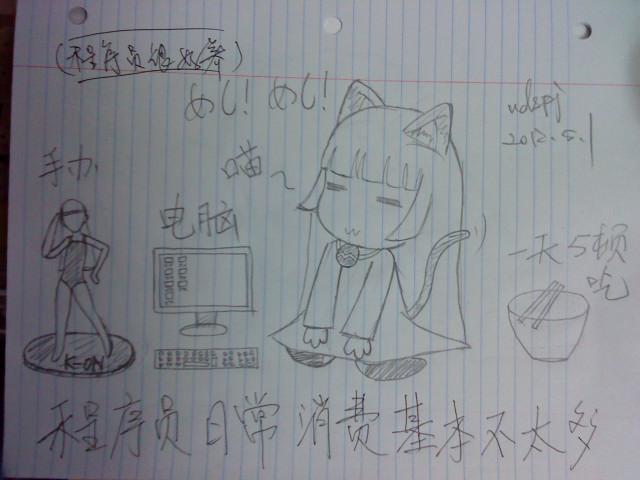 (程序员很好养)
めし! めし!
udspj
2012.5.1
手办
喵~
电脑
一天5顿
吃
K-ON
程序员日常消费基本不太多